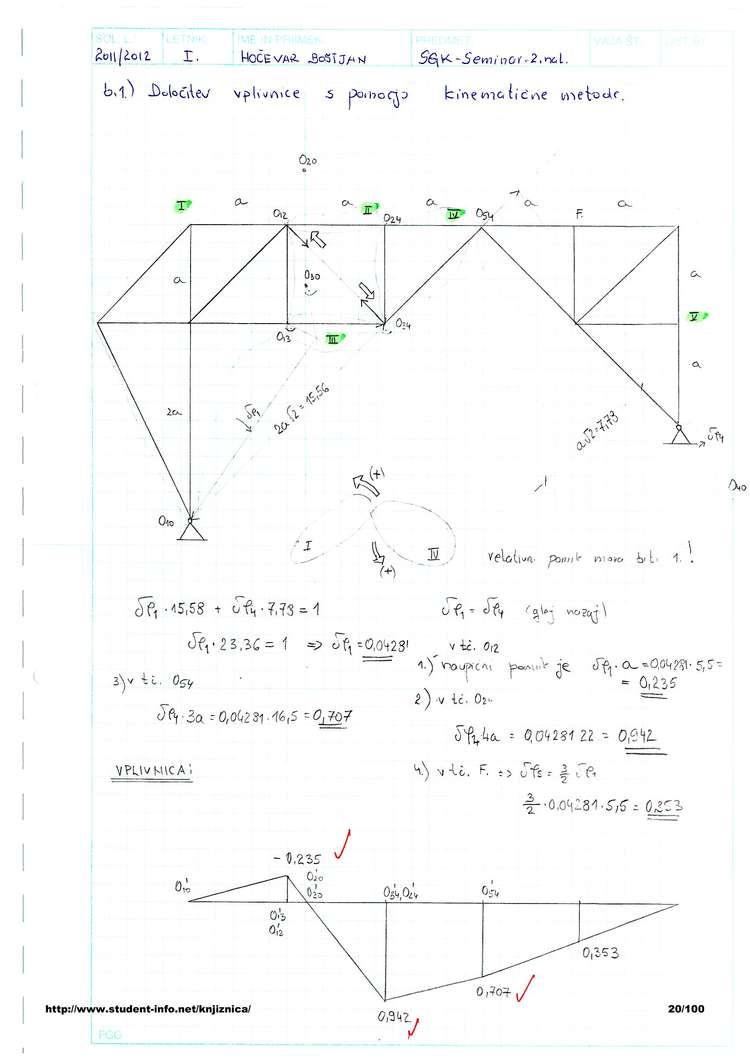 ŠOL. L. LETNIK IME IN PRIIMEK PREDMET VAJA ŠT. LIST ŠT.
2011/2012 I. HOČEVAR BOŠTJAN SGK-Seminar-2.nal.
b.1.) Določitev vplivnice s pomočjo kinematične metode.
O20
I a O12 a II O24 a IV O54 a F. a
a O30 a
O13 III O34 V
2a δφ1 2a√2=15,56 a√2=7,78 a
δφ4
O10 O40
(+)
I IV
(+)
relativni pomik mora biti 1.!
δφ1·15,58 + δφ4·7,78=1 δφ1=δφ4 (glej nazaj)
δφ1·23,36=1 => δφ1=0,04281 v tč. O12
1.) navpični pomik je δφ1·a=0,04281·5,5=
= 0,235
3) v tč. O54 2) v tč. O24
δφ4·3a=0,04281·16,5=0,707
δφ4·4a=0,04281·22=0,942
VPLIVNICA: 4.) v tč. F. => δφ5=3/2 δφ1
3/2·0,04281·5,5=0,353
-0,235
O'10 O'20 O'34,O'24 O'54
O'30
O'13
O'12
0,353
0,707
0,942
http://www.student-info.net/knjiznica/ 20/100
FGG